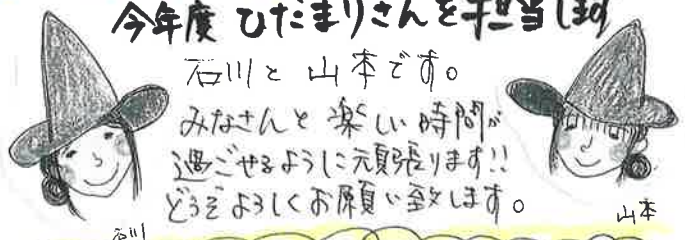 今年度 ひだまりさんを担当します
石川と 山本です。
みなさんと 楽しい時間が
過ごせるように頑張ります!!
どうぞよろしくお願い致します。
石川
山本